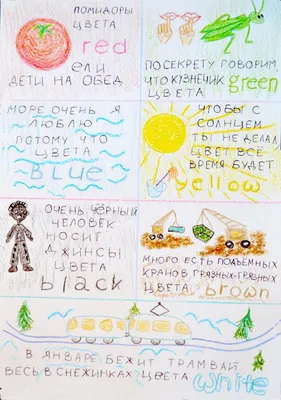 ПОМИДОРЫ
ЦВЕТА
red
ЕЛИ
ДЕТИ НА ОБЕД
ПОСЕКРЕТУ ГОВОРИМ
ЧТО КУЗНЕЧИК
ЦВЕТА green
МОРЕ ОЧЕНЬ Я
ЛЮБЛЮ
ПОТОМУ ЧТО
ЦВЕТА
BLUE
ЧТОБЫ С
СОЛНЦЕМ
ТЫ НЕ ДЕЛАЛ
ЦВЕТ ВСЁ
ВРЕМЯ БУДЕТ
yellow
ОЧЕНЬ ЧЁРНЫЙ
ЧЕЛОВЕК
НОСИТ
ДЖИНСЫ
ЦВЕТА
black
МНОГО ЕСТЬ ПОДЪЁМНЫХ
КРАНОВ ГРЯЗНЫХ-ГРЯЗНЫХ
ЦВЕТА brown
В ЯНВАРЕ БЕЖИТ ТРАМВАЙ
ВЕСЬ В СНЕЖИНКАХ ЦВЕТА
white